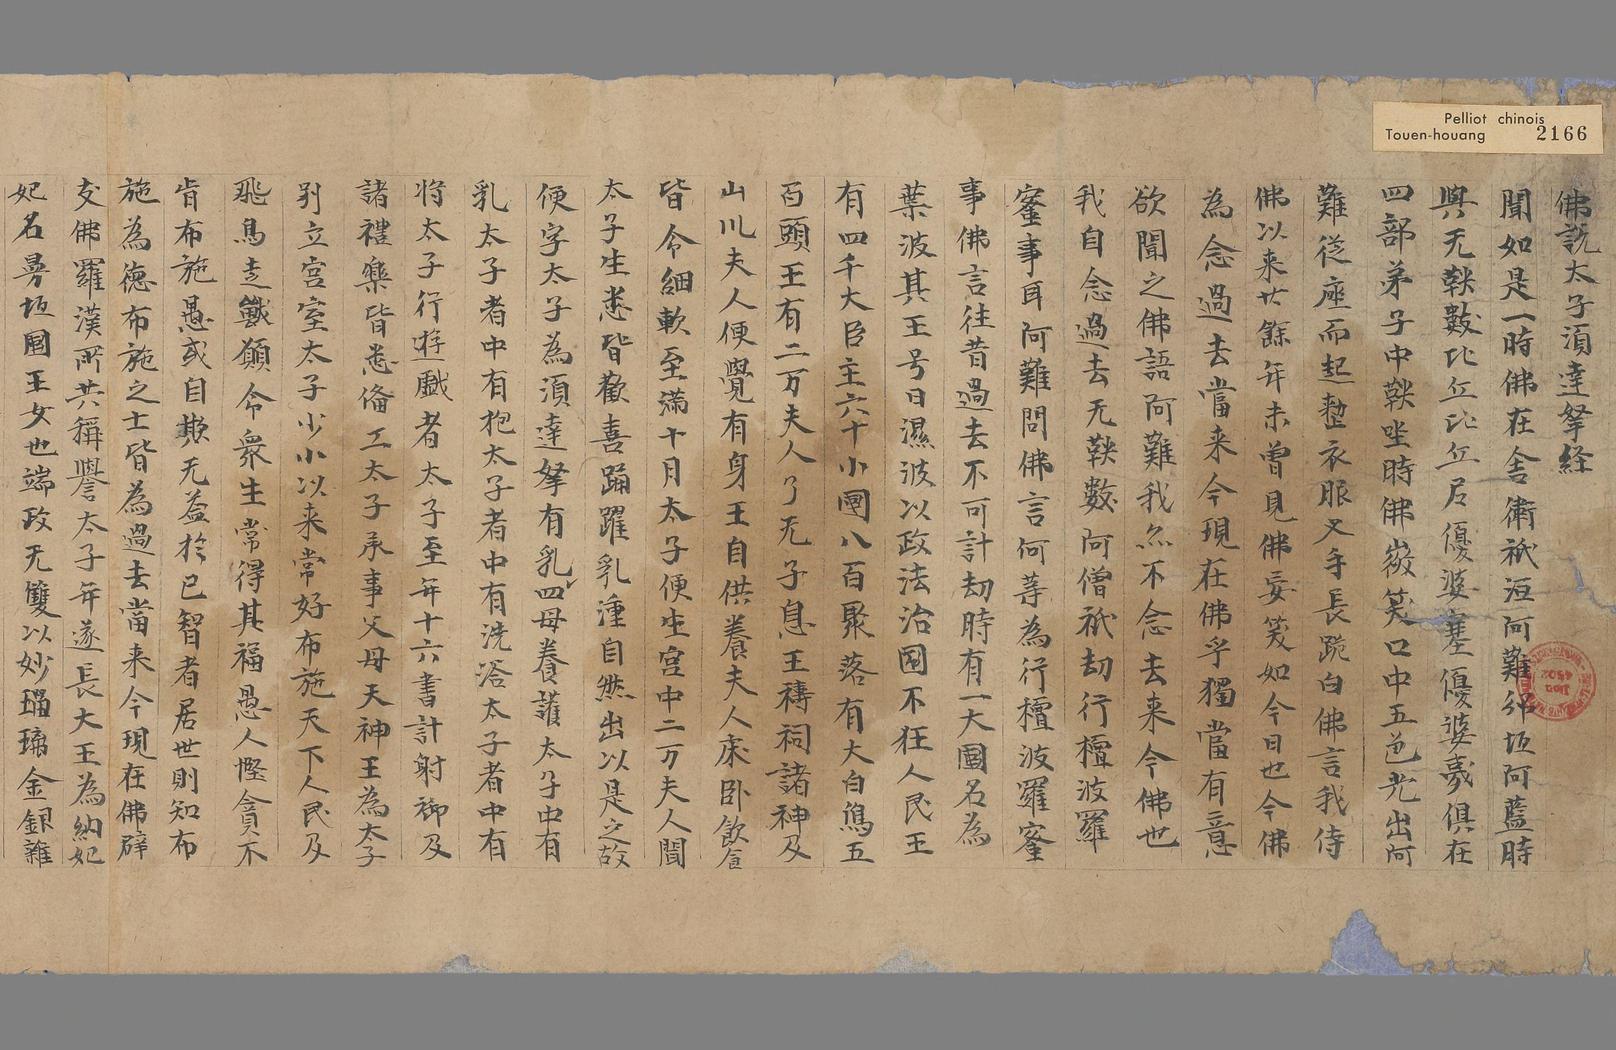 Pelliot chinois
Touen-houang 2166
佛説太子須達拏経
聞如是一時佛在舍衛祇洹阿難邠坻阿藍時
與无鞅數比丘比丘尼優婆塞優婆夷俱在
四部弟子中鞅坐時佛微笑口中五色光出阿
難従座而起整衣服叉手長跪白佛言我侍
佛以来廿餘年未曾見佛妄笑如今日也今佛
為念過去當来今現在佛乎獨當有意
欲聞之佛語阿難我亦不念去来今佛也
我自念過去无鞅數阿僧祇劫行檀波羅
蜜事耳阿難問佛言何等為行檀波羅蜜
事佛言往昔過去不可計劫時有一大國名為
葉波其王号曰濕波以政法治国不狂人民王
有四千大臣主六十小國八百聚落有大白鳥五
百頭王有二万夫人了无子息王禱祠諸神及
山川夫人便覺有身王自供養夫人床卧飲食
皆令細軟至滿十月太子便生宫中二万夫人聞
太子生悉皆歡喜踊躍乳湩自然出以是之故
便字太子為須達拏有乳四母養護太子中有
乳太子者中有抱太子者中有洗浴太子者中有
将太子行遊戲者太子至年十六書計射御及
諸禮樂皆悉俻工太子承事父母天神王為太子
别立宫室太子少小以来常好布施天下人民及
飛鳥走獸願令衆生常得其福愚人慳貪不
肯布施愚或自欺无益於已智者居世則知布
施為德布施之士皆為過去當来今現在佛辟
支佛羅漢所共稱譽太子年遂長大王為納妃
妃名曼坻國王女也端政无雙以妙瑠璃金銀雜